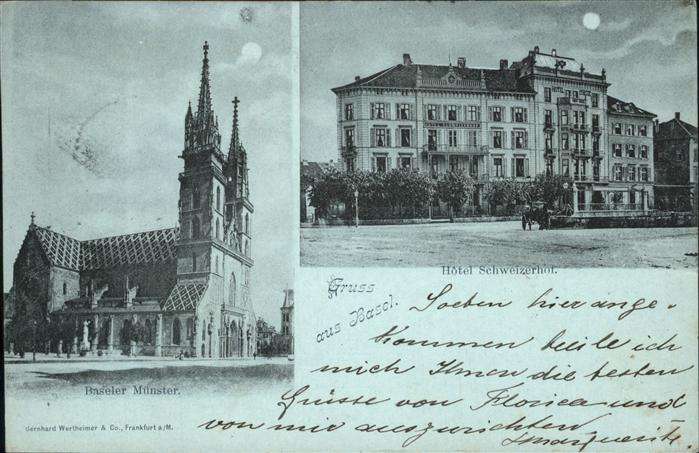 Hôtel Schweizerhof.
Gruss
aus Basel.
Baseler Münster.
Soeben hier ange-
kommen beeile ich
mich Ihnen die besten
Grüsse von Florica und
von mir auszurichten
Marguerite.
Bernhard Wertheimer & Co., Frankfurt a/M.